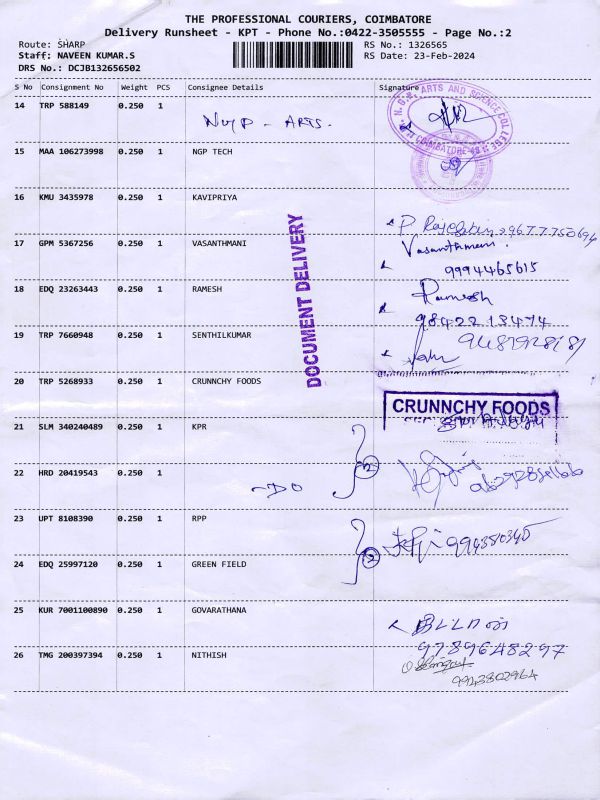 THE PROFESSIONAL COURIERS, COIMBATORE
Delivery Runsheet - KPT - Phone No.:0422-3505555 - Page No.:2
Route: SHARP
Staff: NAVEEN KUMAR.S
DRS No.: DCJB132656502
RS No.: 1326565
RS Date: 23-Feb-2024
S No Consignment No Weight PCS Consignee Details Signature
14 TRP 588149 0.250 1
ARTS AND SCIENCE COLLEGE
COIMBATORE-48
15 MAA 106273998 0.250 1 NGP TECH
16 KMU 3435978 0.250 1 KAVIPRIYA
17 GPM 5367256 0.250 1 VASANTHMANI Vasanthmani
9994465615
DOCUMENT DELIVERY
18 EDQ 23263443 0.250 1 RAMESH Ramesh
9842213474
19 TRP 7660948 0.250 1 SENTHILKUMAR
20 TRP 5268933 0.250 1 CRUNNCHY FOODS
CRUNNCHY FOODS
21 SLM 340240489 0.250 1 KPR
2
22 HRD 20419543 0.250 1 -DO
23 UPT 8108390 0.250 1 RPP
2
24 EDQ 25997120 0.250 1 GREEN FIELD
25 KUR 7001100890 0.250 1 GOVARATHANA
9789648297
26 TMG 200397394 0.250 1 NITHISH
9943802964